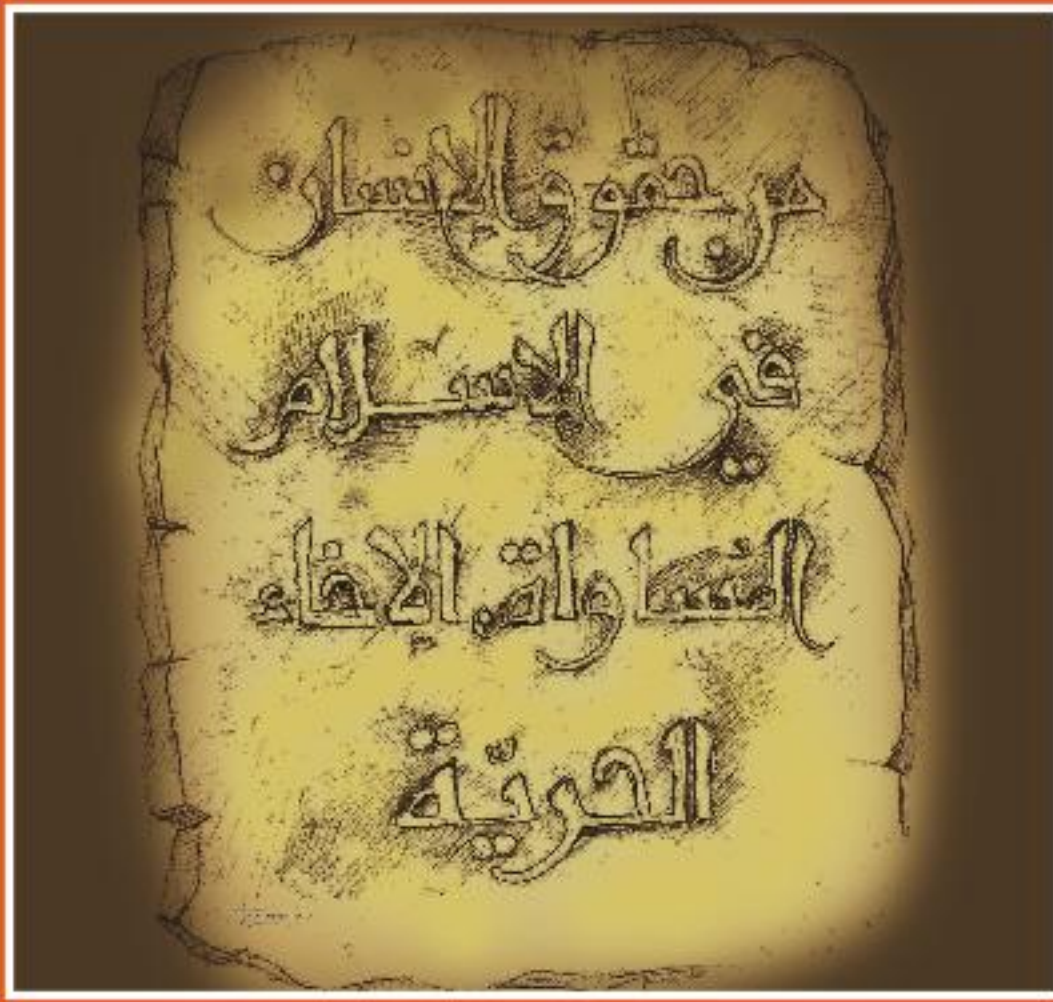 من حقوق الإنسان
في الإسلام
المساواة الإخاء
الحريّة